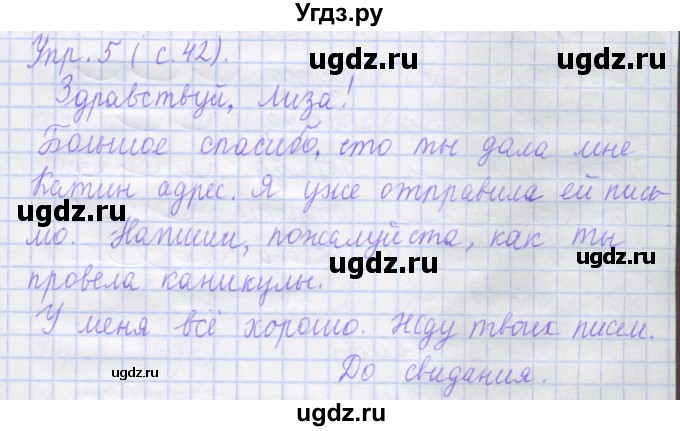 Угдз.ру
Упр. 5 (с. 42).
ugdz.ru ugdz.ru
Здравствуй, Лиза!
Большое спасибо, что ты дала мне
ugdz.ru
Катин адрес. Я уже отправила ей пись-
ugdz.ru
мо. Напиши, пожалуйста, как ты
ugdz.ru ugdz.ru
провела каникулы.
У меня всё хорошо. Жду твоих писем.
ugdz.ru ugdz.ru
До свидания.
ugdz.ru